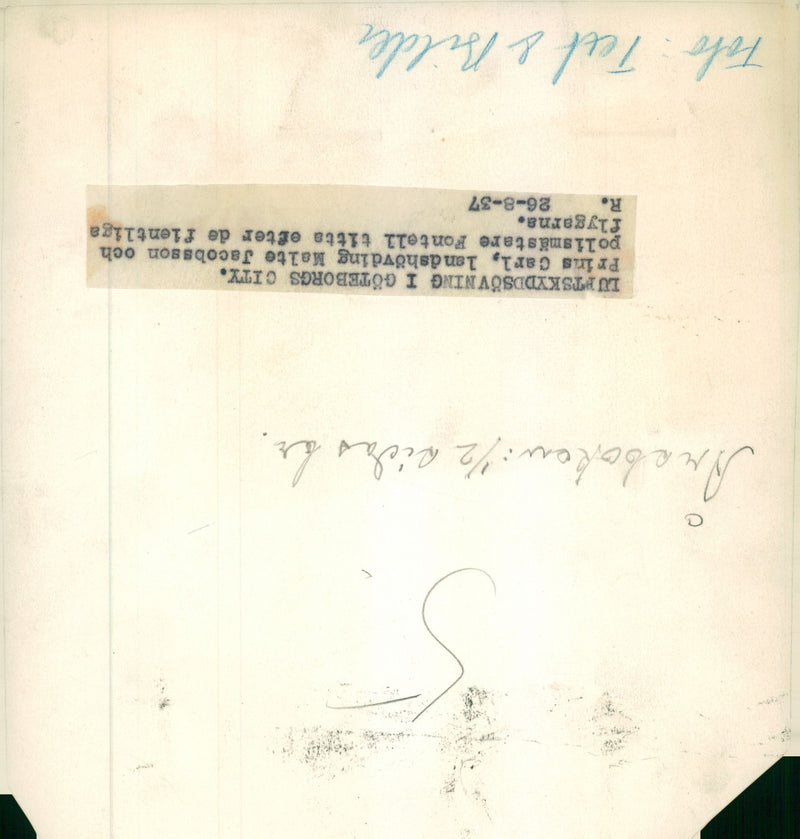 5
Årsboken: 1/2 sidas br.
LUFTSKYDDSÖVNING I GÖTEBORGS CITY.
Prins Carl, landshövding Malte Jacobsson och
polismästare Fontell titta efter de fientliga
flygarna.
R. 26-8-37
Foto: Text & Bilder